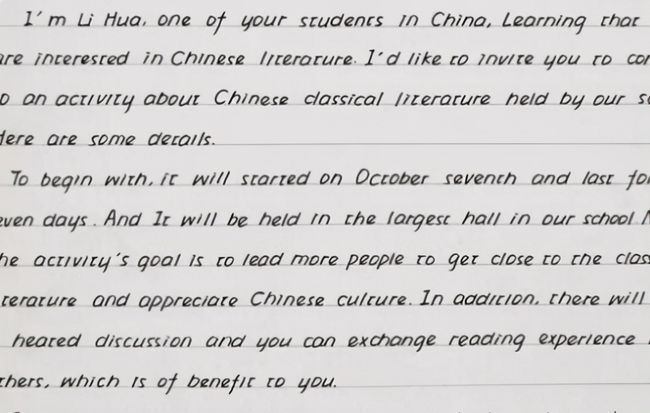 I'm Li Hua, one of your students in China, Learning that
are interested in Chinese literature. I'd like to invite you to
an activity about Chinese classical literature held by our
Here are some details.
To begin with, it will started on October seventh and last for
seven days. And It will be held in the largest hall in our school
the activity's goal is to lead more people to get close to the
literature and appreciate Chinese culture. In addition, there will
heated discussion and you can exchange reading experience
others, which is of benefit to you.